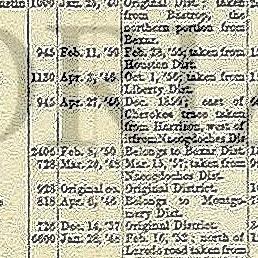 1000 Jan. 25, '40 Original Dist. taken
from Bastrop; the
northern portion from
Bexar.
945 Feb. 11, '50 Feb. 23, '55; taken from
Houston Dist.
1130 Apr. 2, '46 Oct. 1, '56; taken from
Liberty Dist.
945 Apr. 27, '46 Dec. 1854; east of
Cherokee trace taken
from Harrison, west of
it from Nacogdoches Dis
2406 Feb. 8, '50 Belongs to Bexar Dist.
728 Mar. 20, '45 Mar. 15, '57; taken from
Nacogdoches Dist.
923 Original co. Original District.
818 Apr. 6, '46 Belongs to Montgo-
mery Dist.
726 Dec. 14, '37 Original District.
6600 Jan. 28, '48 Feb. 16, '52; north of
Laredo road taken from